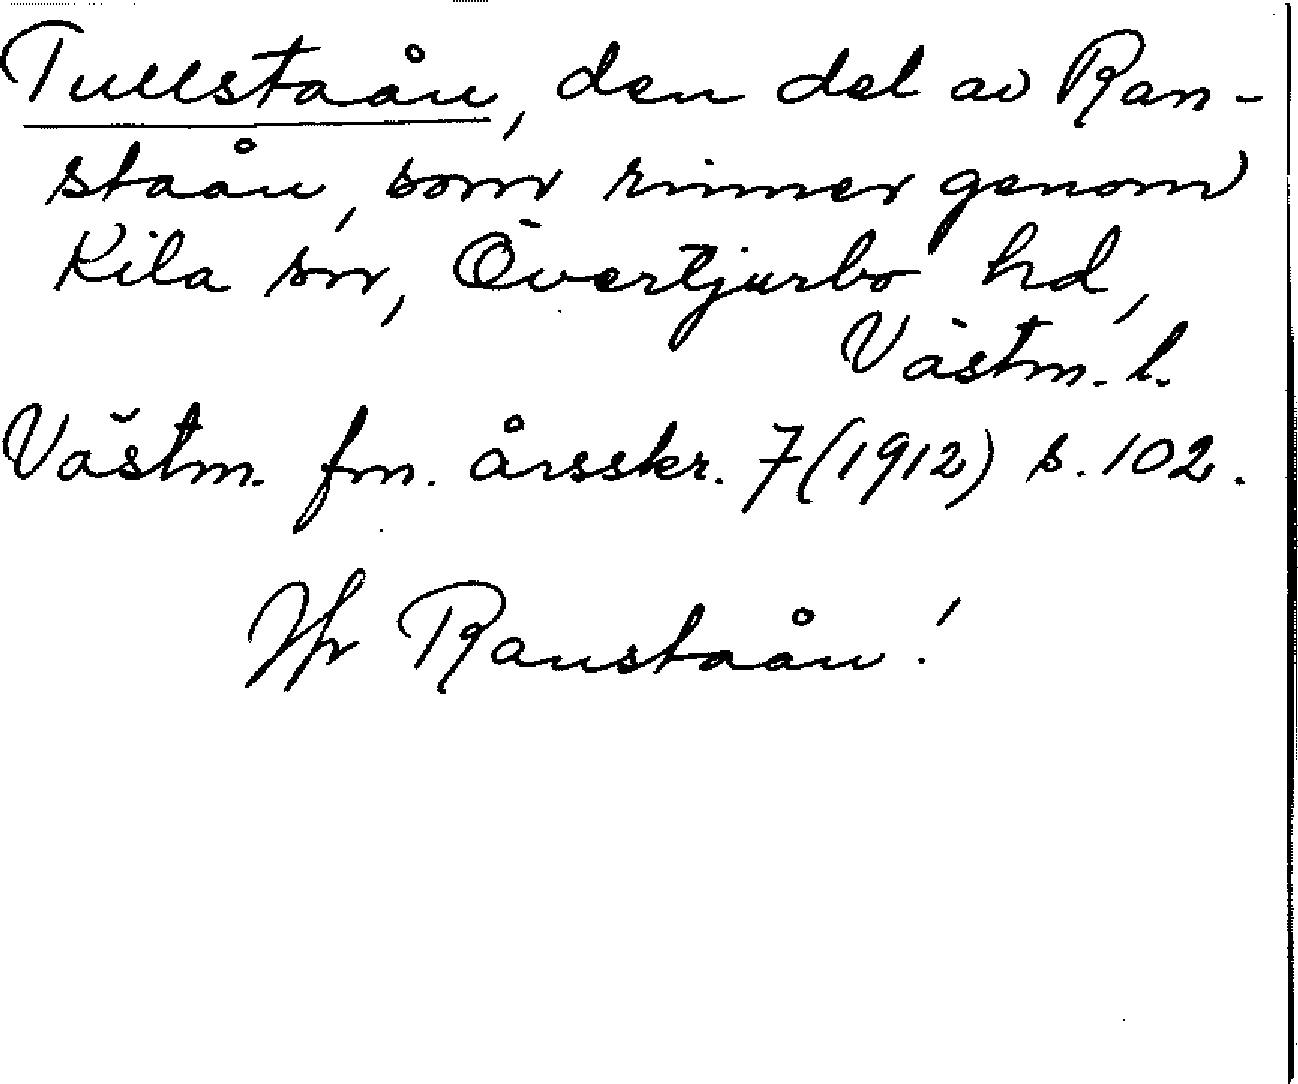 Tullstaån, den del av Ran-
staån, som rinner genom
Kila sn, Övertjurbo hd,
Västm. l.
Västm. fm. årsskr. 7(1912) s. 102.
Jfr Ranstaån!